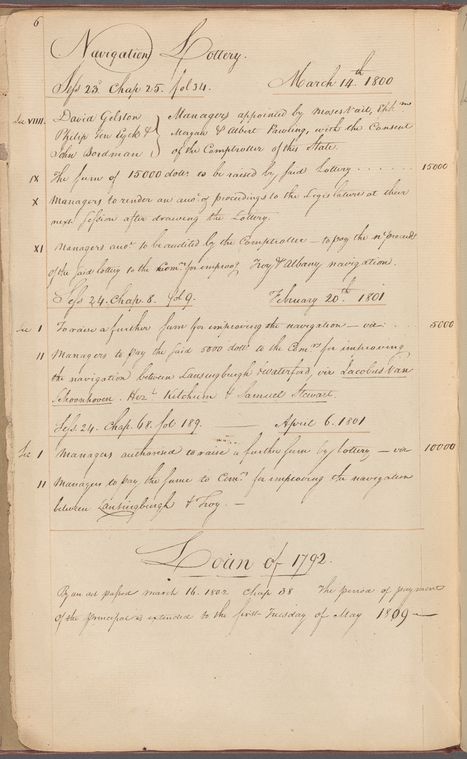 6
Navigation Lottery.
Sess 23d Chap 25. fol 34. March 14th 1800
Sec VIIII. David Gelston } Managers appointed by Moses Vail, Ehk ms
Philip Ten Eyck & Morgan & Albert Pawling, with the Consent
John Bordman of the Comptroller of this State.
IX The sum of 15000 dolls. to be raised by said Lottery . . . . . . 15000
X Managers to render an acct. of proceedings to the Legislature at their
next Session after drawing the Lottery.
XI Managers acct. to be audited by the Comptroller – to pay the nt. proceeds
of the said lottery to the Comrs. for improvg. Troy & Albany navigation.
Sess 24. Chap. 8. fol 9. February 20th. 1801
Sec 1 To raise a further sum for improving the navigation – viz . . . 5000
11 Managers to pay the said 5000 dolls. to the Comrs. for improving
the navigation between Lansingburgh & Waterford, viz Jacobus Van
Schoonhoven. Hez. Ketchum & Samuel Stewart.
Sess. 24. Chap. 68. fol 189. — April 6. 1801
Sec 1 Managers authorised to raise a further sum by lottery – viz 10000
11 Managers to pay the same to Comrs. for improving the navigation
between Lansingburgh & Troy. –
Loan of 1792.
By an act passed march 16. 1802 Chap 38 The period of payment
of the principal is extended to the first Tuesday of May 1809 —